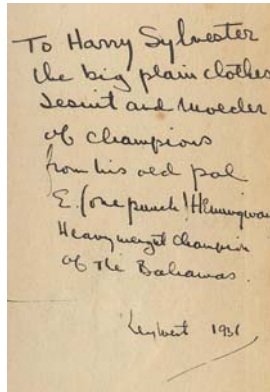 To Harry Sylvester
the big plain clothes
Jesuit and moulder
of champions
from his old pal
E. (one punch) Hemingway
Heavyweight champion
of the Bahamas.
Key West 1936